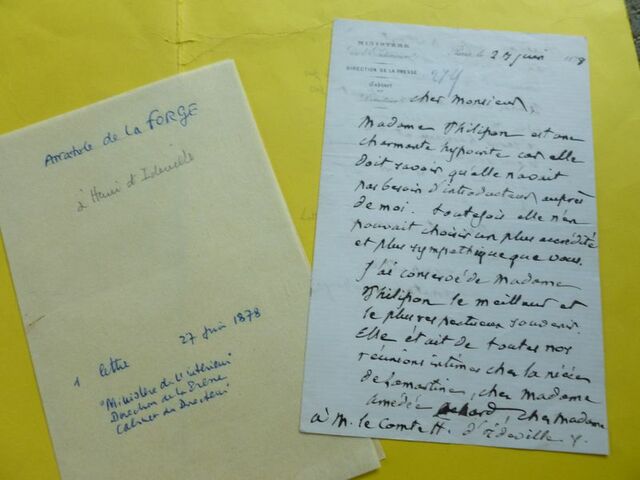 Anatole de La FORGE
à Henri d'Ideville
1 lettre 27 juin 1878
"Ministère de l'intérieur
Direction de la Presse
Cabinet du Directeur"
MINISTÈRE
DIRECTION DE LA PRESSE
Cabinet
Paris, le 27 juin 1878
274
cher Monsieur,
Madame Philipon est une
charmante hypocrite car elle
doit savoir qu'elle n'avait
pas besoin d'introducteur auprès
de moi. toutefois elle n'en
pouvait choisir un plus accrédité
et plus sympathique que vous.
J'ai conservé de Madame
Philipon le meilleur et
le plus respectueux souvenir.
Elle était de toutes nos
réunions intimes chez la nièce
de Lamartine, chez madame
amedée achard, chez madame
à M. le Comte H. d'Ideville